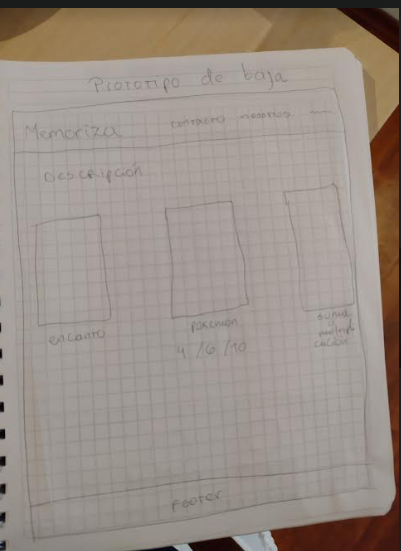 Prototipo de baja
Memoriza contacto nosotros
Descripción
encanto
pokemon
suma
y
multipli
cación
4 /6 /10
Footer